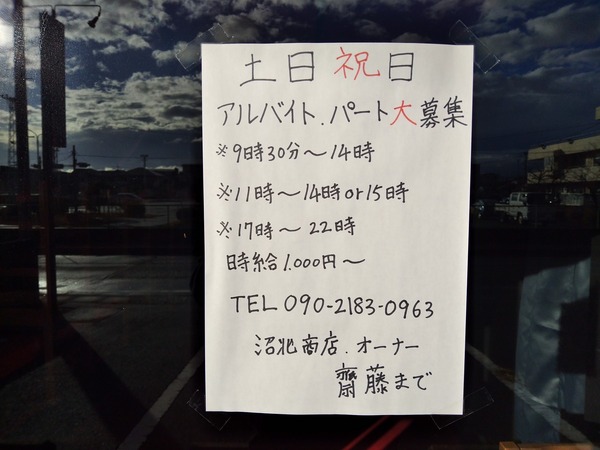 土日祝日
アルバイト.パート大募集
※9時30分～14時
※11時～14時or15時
※17時～22時
時給1.000円～
TEL 090-2183-0963
沼北商店.オーナー
齋藤まで